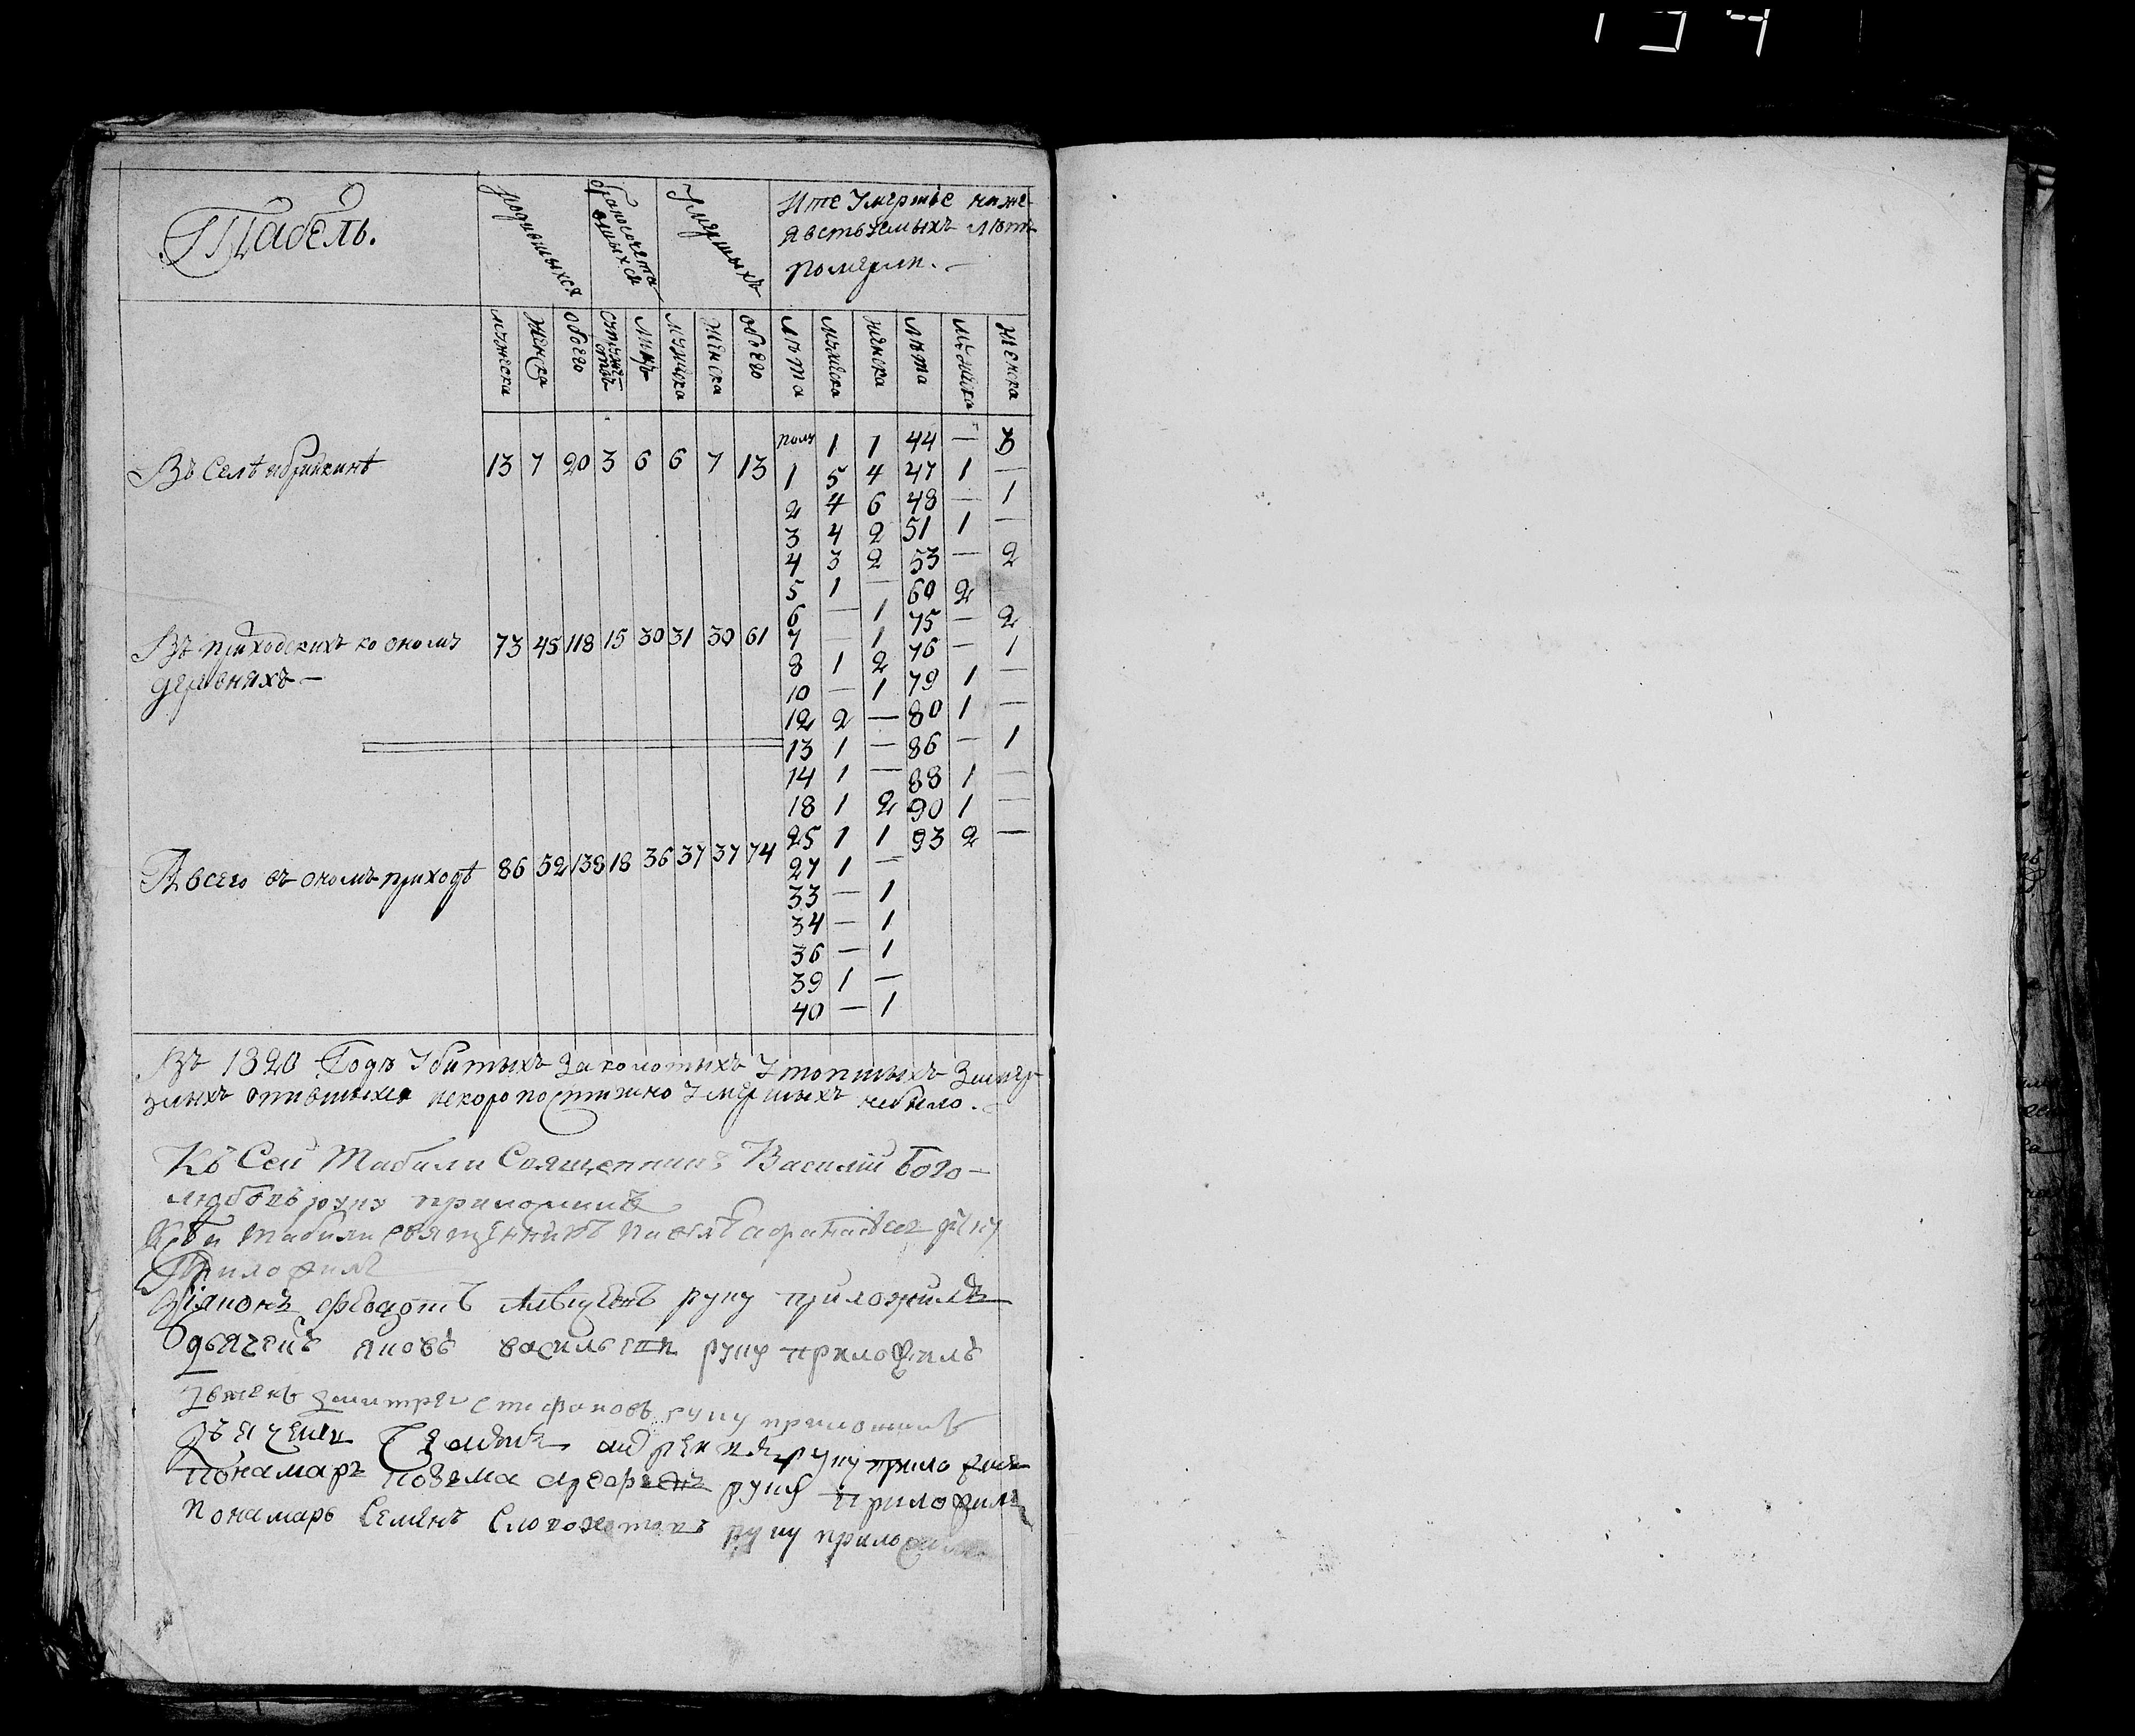 Табель.
родившихся
бракосочета
вшихся
Умершихъ
Ите Умершіе ниже
явствуемыхъ лѣтъ
померли.
мужеска
Женска
обоего
Лицъ
мужеска
Женска
обоего
Лѣта
мужеска
женска
Лѣта
мужеска
женска
полу 1 1 44 —
Въ Селѣ 13 7 20 3 6 6 7 13
1 5 4 47 1 —
2 4 6 48 — 1
3 4 2 51 1 —
4 3 2 53 — 2
5 1 — 60 2
6 — 1 75 — 2
7 — 1 76 — 1
Въ приходскихъ ко оному 73 45 118 15 30 31 30 61
деревняхъ —
8 1 2 79 1 —
10 — 1 80 1 —
12 2 — 86 — 1
13 1 — 88 1 —
14 1 — 90 1 —
18 1 2 93 2 —
25 1 1
А всего въ ономъ приходѣ 86 52 138 18 36 37 37 74
27 1 —
33 — 1
34 — 1
36 — 1
39 1 —
40 — 1
Въ 1820 Годъ Убитыхъ Заколотыхъ Утопшихъ Замер
зшихъ опившихся искоропостижно Умершихъ небыло.
Къ Сей Табели Священникъ Василій Бого-
любовъ руку приложилъ
Табели священникъ руку
Приложилъ
руку приложилъ
дьячекъ яковъ васильевъ руку приложилъ
Дмитрей Стефановъ руку приложилъ
андреевъ руку приложилъ
понамарь козема руку приложилъ
понамарь Семенъ руку приложилъ